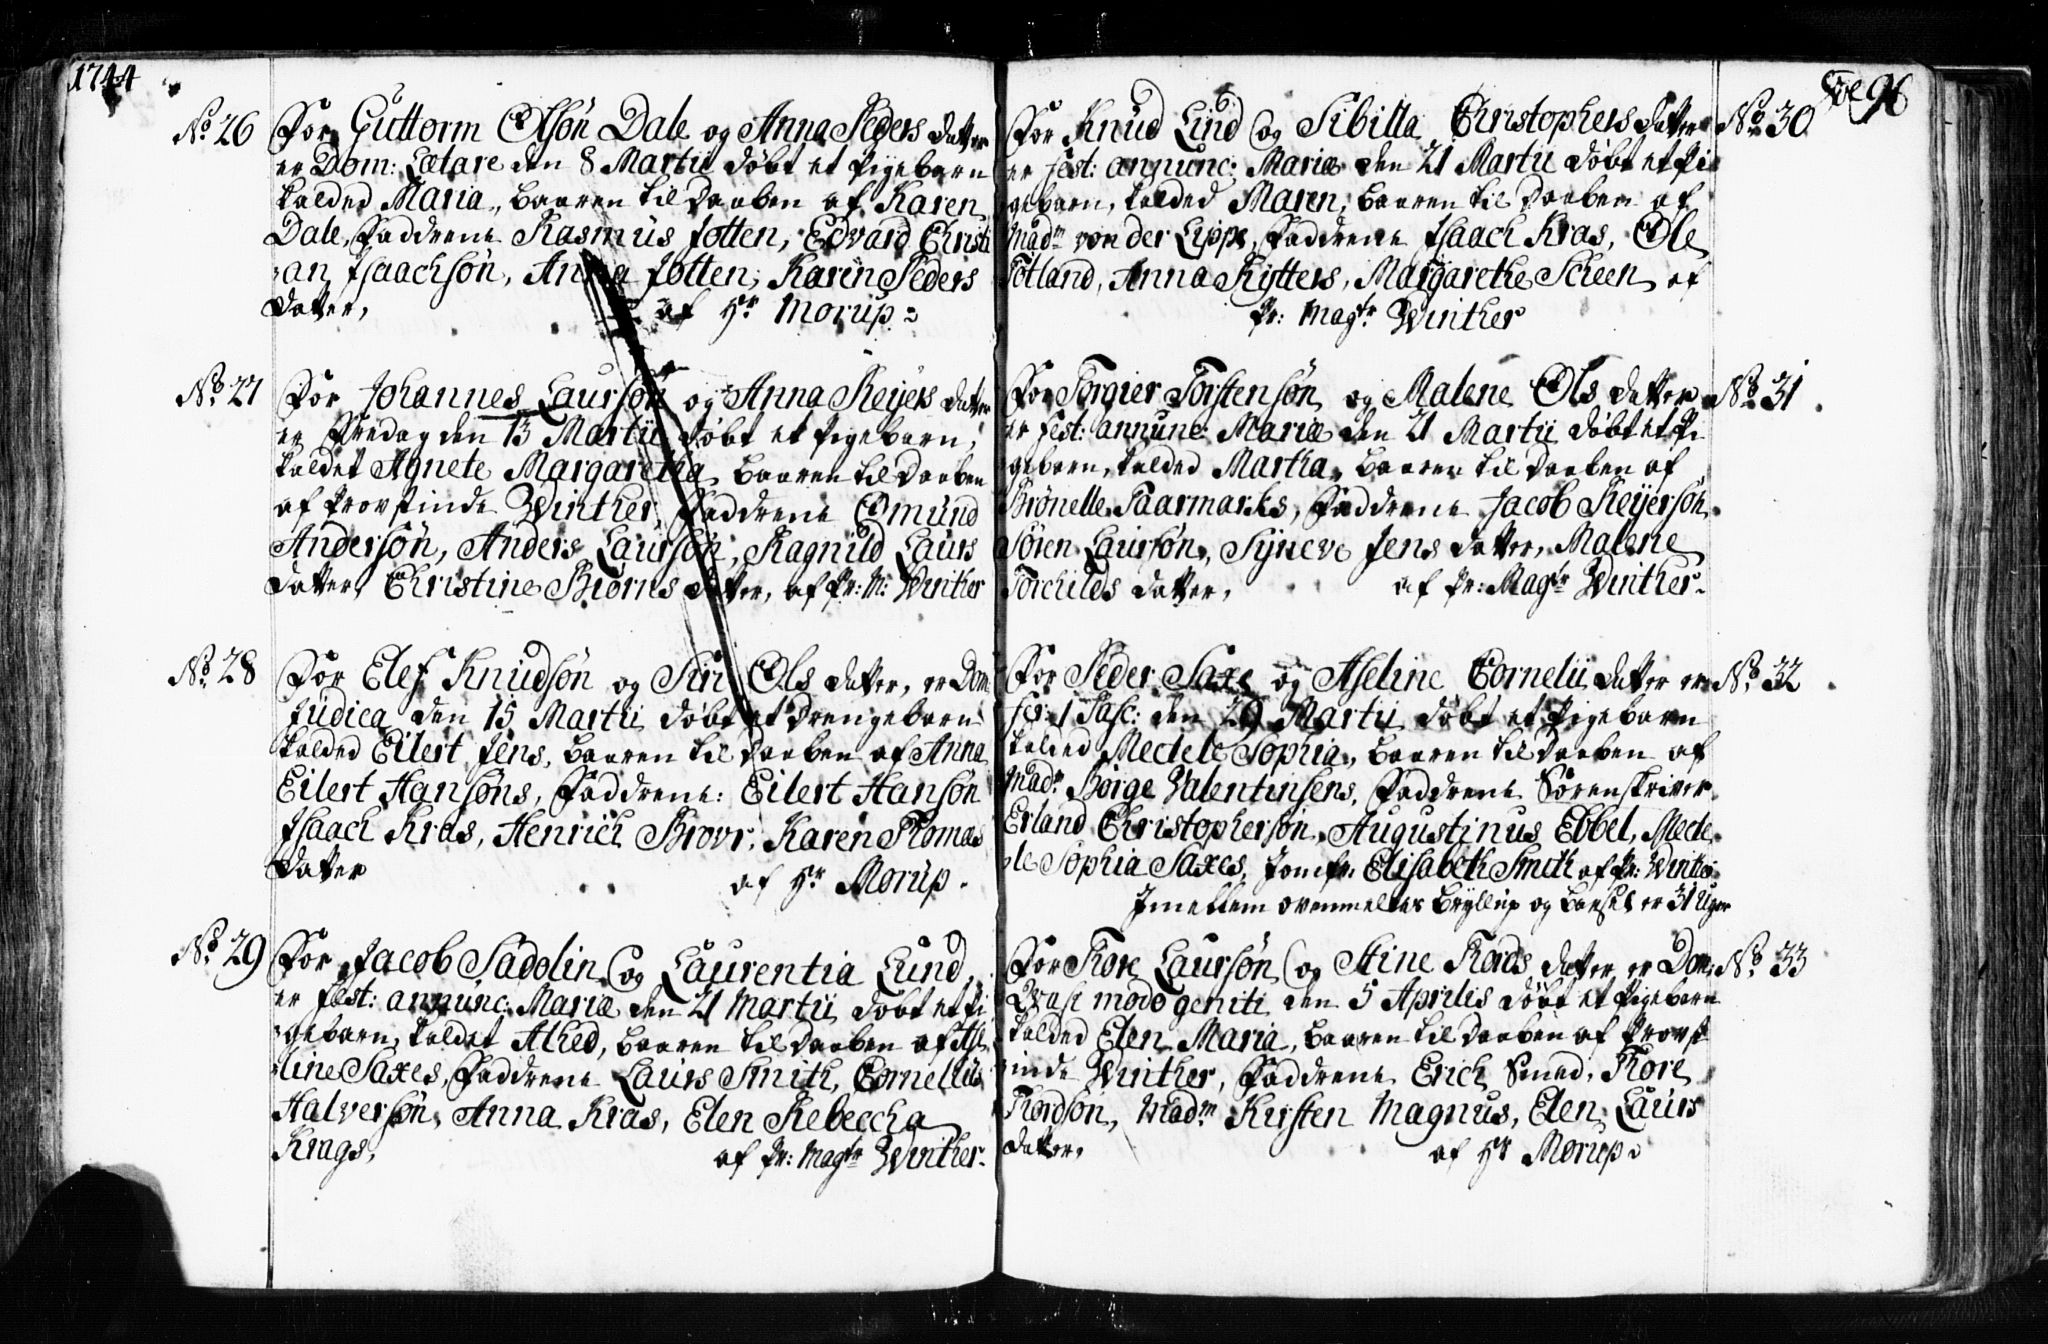 1744
No 26 For Guttorm Olsøn Dale og Anna Peders datter
er Dom: Lætare den 8 Martii døbt et Pigebarn
kalded Maria, baaren til Daaben af Karen
Dale, Faddrene Rasmus Jotten, Edvard Christi
an Isaachsøn, Anna Jotten, Karen Peders
datter, af Hr Morup
No 27 For Johannes Laursøn og Anna Reijers datter
er Fredag den 13 Martii døbt et Pigebarn,
kaldet Agnete Margaretha, baaren til Daaben
af Provstinde Winther, Faddrene Edmund
Andersøn, Anders Laursøn, Ragnild Laurs
datter, Christine Biørns datter, af Pr: M: Winther
No 28 For Elef Knudsøn og Siri Ols datter, er Dom
Judica den 15 Martii døbt et Drengebarn
kalded Eilert Jens, baaren til Daaben af Anna
Eilert Hansøns, Faddrene: Eilert Hansøn
Isaach Kras, Henrich Brovr, Karen Thomas
datter af Hr Morup.
No 29 For Jacob Sadolin og Laurentia Lund,
er fest: annunc: Mariæ den 21 Martii døbt et Pi
gebarn, kaldet Athed, baaren til Daaben af Ase
line Saxes, Faddrene Laurs Smith, Cornelius
Halversøn, Anna Kras, Elen Rebeccha
Krags, af Pr: Magtr Winther.
96
For Knud Lind og Sibilla Christophers datter No 30
er fest: annunc: Mariæ den 21 Martii døbt et Pi
gebarn, kalded Maren, baaren til Daaben af
Madm von der Lippe, Faddrene Isaach Kras, Ole
Totland, Anna Rytters, Margarethe Scheen af
Pr: Magtr Winther
For Torgier Torstensøn og Malene Ols datter No 31
er fest: annunc: Mariæ den 21 Martii døbt et Pi
gebarn, kalded Martha, baaren til Daaben af
Brønelle Taarmarks, Faddrene Jacob Reijersøn,
Søren Laursøn, Syneve Jens datter, Malene
Torchilds datter, af Pr: Magtr Winther.
For Peder Saxe og Aseline Cornelii datter er No 32
fer: 1 Pasc: den 29 Martii døbt et Pigebarn
kalded Mectele Sophia, baaren til Daaben af
Madm Børge Valentinsens, Faddrene Sorenskriver
Erland Christophersøn, Augustinus Ebbel, Mecte
le Sophia Saxes, Jomfr. Elisabeth Smith af Pr: Winther
Imellem ovenmeldtes Bryllup og Barsel er 31 Uger
For Tore Laursøn og Stine Tords datter er Dom: No 33
Qvasi modo geniti den 5 Aprilis døbt et Pigebarn
kalded Elen Maria, baaren til Daaben af Provst
inde Winther, Faddrene Erich Smed, Tore
Tordsøn, Madm Kirsten Magnus, Elen Laurs
datter, af Hr Morup